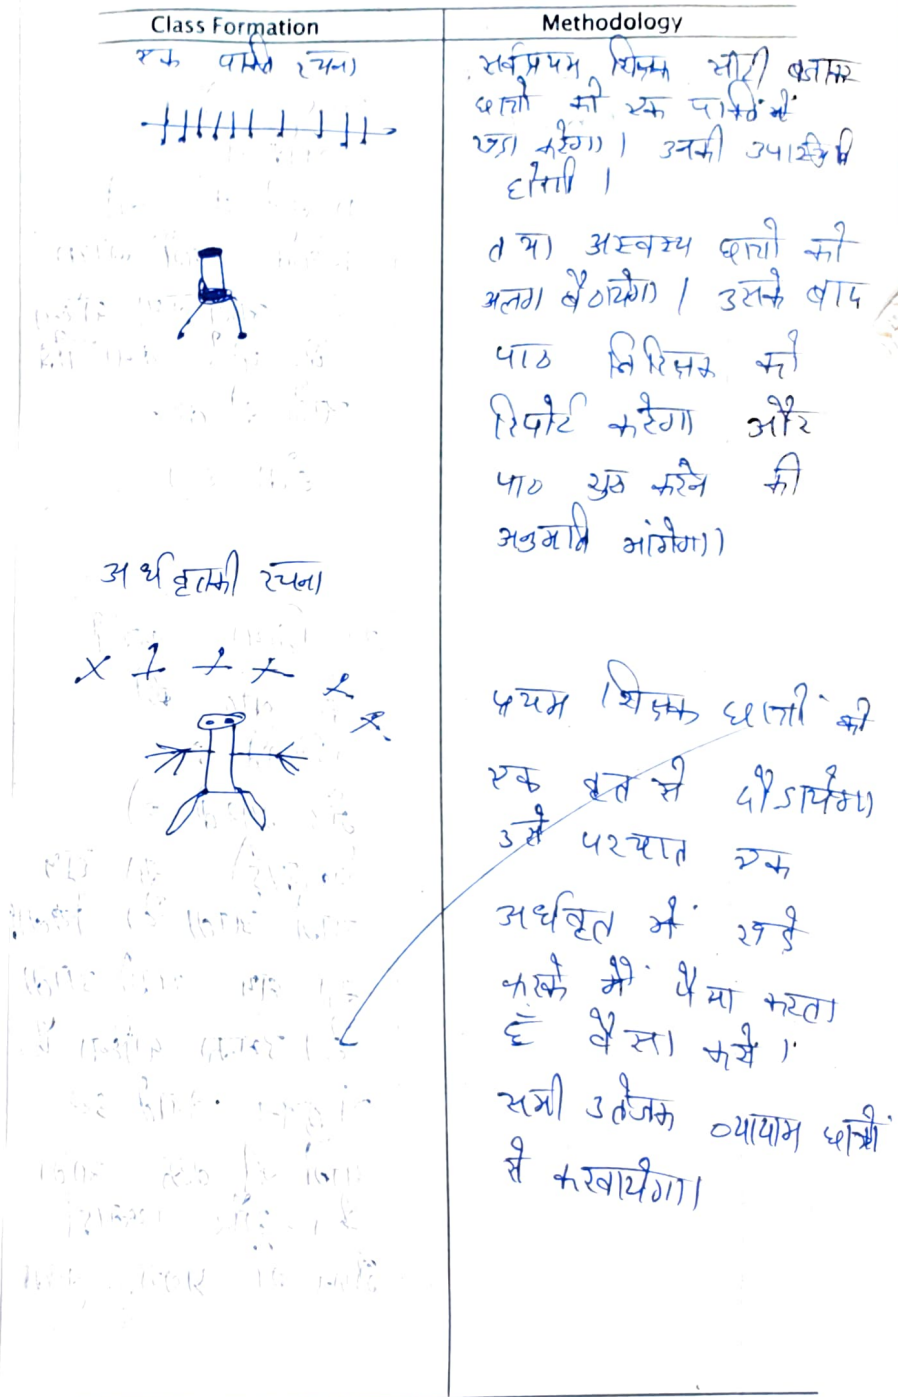 Class Formation
एक पंक्ति रचना
अर्धवृतकी रचना
Methodology
सर्वप्रथम शिक्षक सीटी बजाकर
छात्रो को एक पंक्ति में
खड़ा करेगा। उनकी उपस्थिति
होगी।
तथा अस्वस्थ छात्रो को
अलग बैठायेगा। उसके बाद
पाठ निरिक्षक को
रिपोर्ट करेगा और
पाठ शुरु करने की
अनुमति मांगेगा।
प्रथम शिक्षक छात्रों को
एक वृत से दौडायेगा
उसे पश्चात एक
अर्धवृत में खडे
करके मैं जैसा करता
हूँ वैसा करो।
सभी उतेजक व्यायाम छात्रों
से करवायेगा।